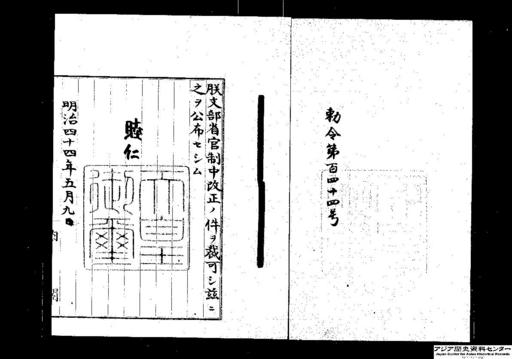 勅令第百四十四号
朕文部省官制中改正ノ件ヲ裁可シ玆ニ
之ヲ公布セシム
睦仁
天皇御璽
明治四十四年五月九日
内閣
アジア歴史資料センター
Japan Center for Asian Historical Records